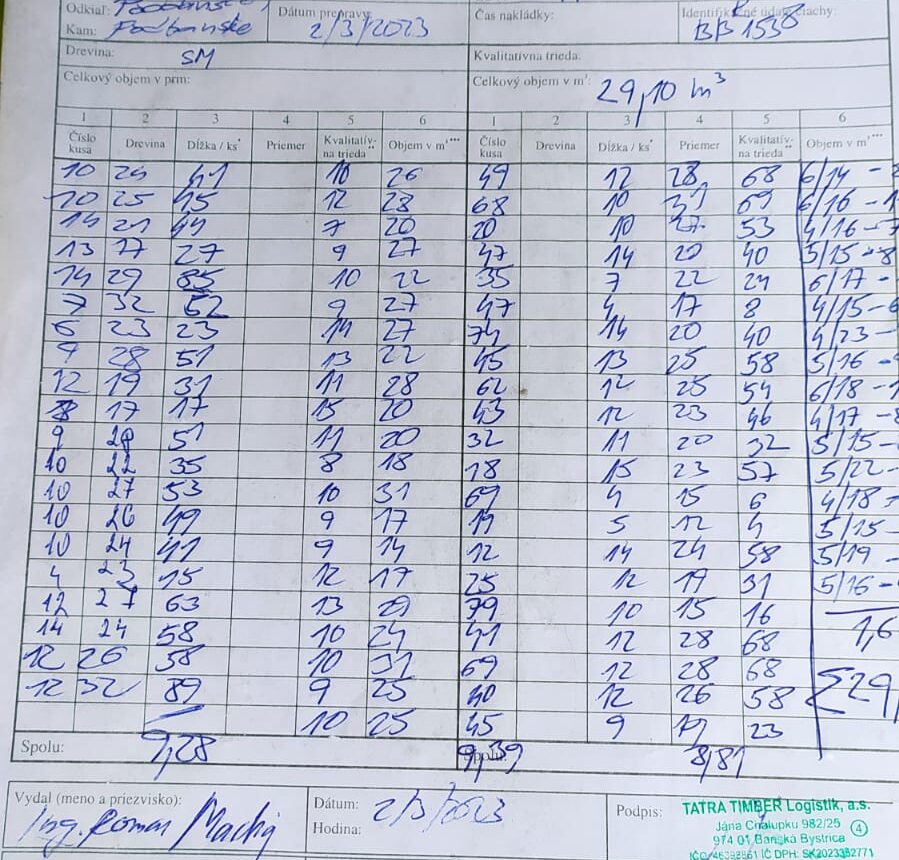 Odkiaľ: Podbanské Dátum prepravy: Čas nakládky: Identifik čné údaje ciachy:
Kam: Podbanské 2/3/2023 BB 1538
Drevina: SM Kvalitatívna trieda:
Celkový objem v prm: Celkový objem v m³: 29,10 m³
1 2 3 4 5 6 1 2 3 4 5 6
Číslo kusa Drevina Dĺžka / ks* Priemer Kvalitatív-na trieda** Objem v m³*** Číslo kusa Drevina Dĺžka / ks* Priemer Kvalitatív-na trieda** Objem v m³***
10 24 41 10 26 49 12 28 68 6/14 -
10 25 45 12 28 68 10 31 69 6/16 - 1
14 21 44 7 20 20 10 27 53 4/16 - 7
13 17 27 9 27 47 14 20 40 5/15 - 8
14 29 85 10 22 35 7 22 24 6/17 -
7 32 52 9 27 47 4 17 8 4/15 - 6
6 23 23 14 27 74 14 20 40 4/23 -
9 28 51 13 22 45 13 25 58 5/16 -
12 19 31 11 28 62 12 25 54 6/18 - 1
8 17 17 15 20 43 12 23 46 4/17 - 8
9 28 51 11 20 32 11 20 32 5/15 -
10 22 35 8 18 18 15 23 57 5/22 -
10 27 53 10 31 69 4 15 6 4/18 -
10 26 49 9 17 19 5 12 4 5/15 -
10 24 41 9 14 12 14 24 58 5/19 -
4 23 15 12 17 25 12 19 31 5/16 -
12 27 63 13 29 79 10 15 16
14 24 58 10 24 41 12 28 68 1,6
12 26 58 10 31 69 12 28 68
12 32 89 9 25 40 12 26 58 Σ29,
10 25 45 9 19 23
Spolu: 9,28 Spolu: 9,39 8,81
Vydal (meno a priezvisko): Dátum: 2/3/2023 Podpis: TATRA TIMBER Logistik, a.s.
Ing. Roman Machaj Hodina: Jána Chalupku 982/25 4
974 01 Banská Bystrica
IČO: 46392861 IČ DPH: SK2023352771